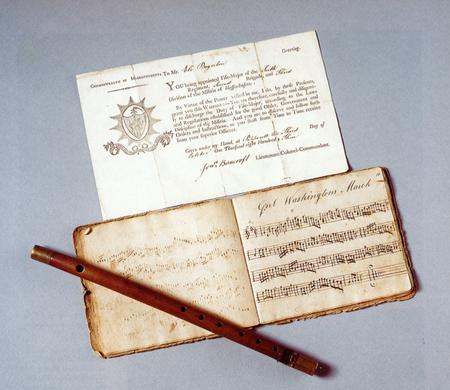 COMMONWEALTH OF MASSACHUSETTS. To Mr. Greeting.
YOU being appointed Fife-Major of the
Regiment, Second Brigade, and Third
Division of the Militia of Massachusetts;
By Virtue of the Power vested in me, I do, by these Presents,
grant you this Warrant:—You are, therefore, carefully and diligent-
ly to discharge the Duty of Fife-Major, according to the Laws
and Regulations established for the good Order, Government and
Discipline of the Militia. And you are to observe and follow such
Orders and Instructions, as you shall from Time to Time receive
from your superior Officers.
Given under my Hand, at the Third Day of
One Thousand eight Hundred,
Bancroft Lieutenant-Colonel-Commandant.
Washington March